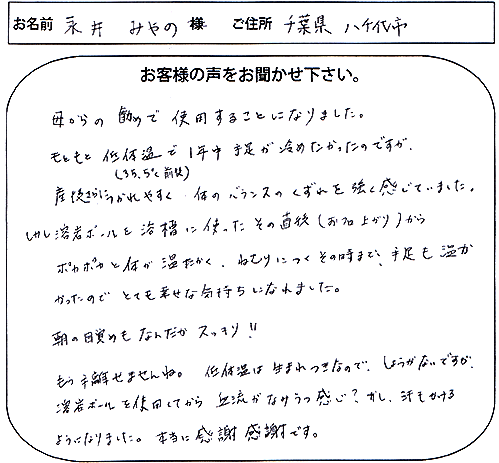 お名前 永井 みやの 様 ご住所 千葉県 八千代市
お客様の声をお聞かせ下さい。
母からの 勧めで 使用することになりました。
もともと 低体温で 1年中 手足が冷めたかったのですが、
(35.5℃前後)
産後さらにつかれやすく 体のバランスの くずれを 強く感じていました。
しかし溶岩ボールを 浴槽に 使った その直後(お風呂上がり)から
ポカポカと体が 温たかく、ねむりにつくその時まで、手足も 温か
かったので とても幸せな気持ちになれました。
朝の目覚めも なんだか スッキリ!!
もう手離せませんね。 低体温は 生まれつきなので、しょうがないですが、
溶岩ボールを使用してから 血流が 感じ? がし、汗もかける
ようになりました。本当に 感謝感謝です。